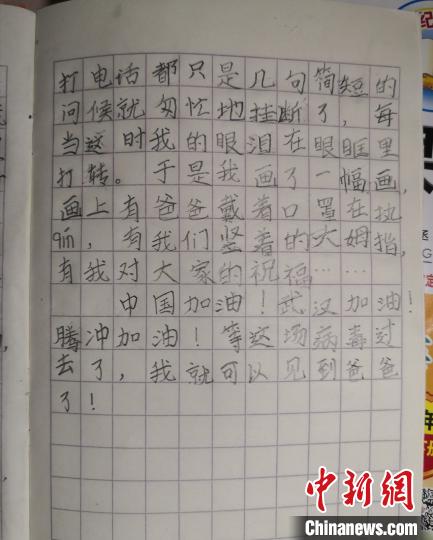 打电话都只是几句简短的
问候就匆忙地挂断了，每
当这时我的眼泪在眼眶里
打转。于是我画了一幅画，
画上有爸爸戴着口罩在执
qin，有我们竖着的大姆指，
有我对大家的祝福……
中国加油！武汉加油！
腾冲加油！等这场病毒过
去了，我就可以见到爸爸
了！
中新网
Chinanews.com